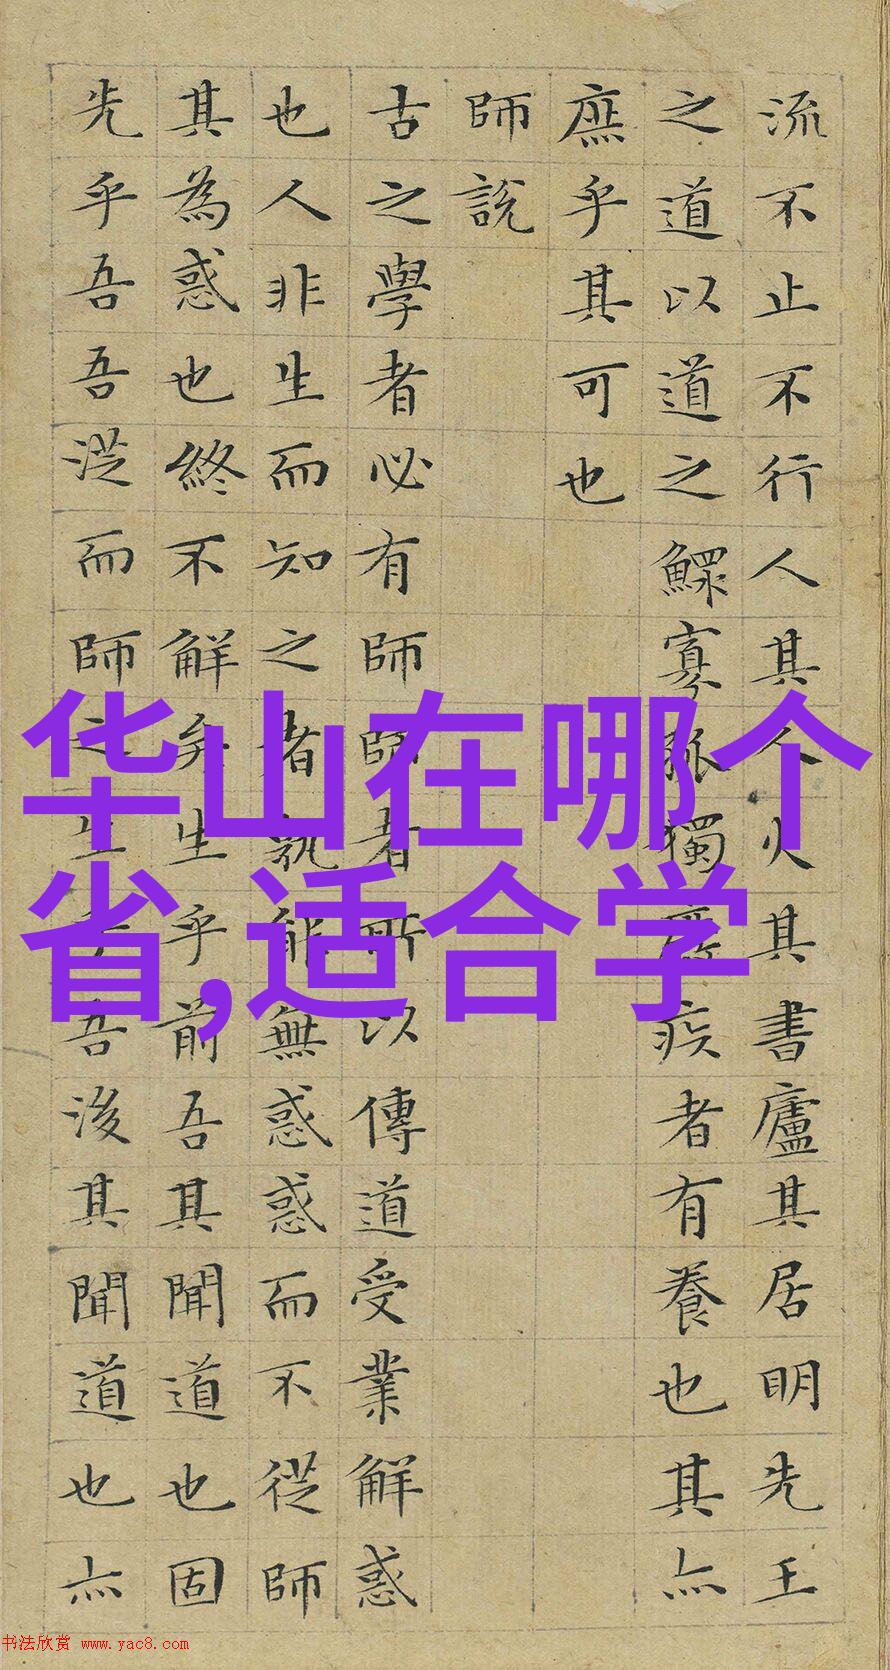 流不止不行人其人火其書廬其居明先王
之道以道之鰥寡孤獨廢疾者有養也其亦
庶乎其可也
師說
古之學者必有師師者所以傳道受業解惑
也人非生而知之者孰能無惑惑而不從師
其為惑也終不解矣生乎前吾其聞道也固
先乎吾吾從而師之生乎吾後其聞道也亦
华山在哪个
省,适合学
书法欣赏 www.yac8.com